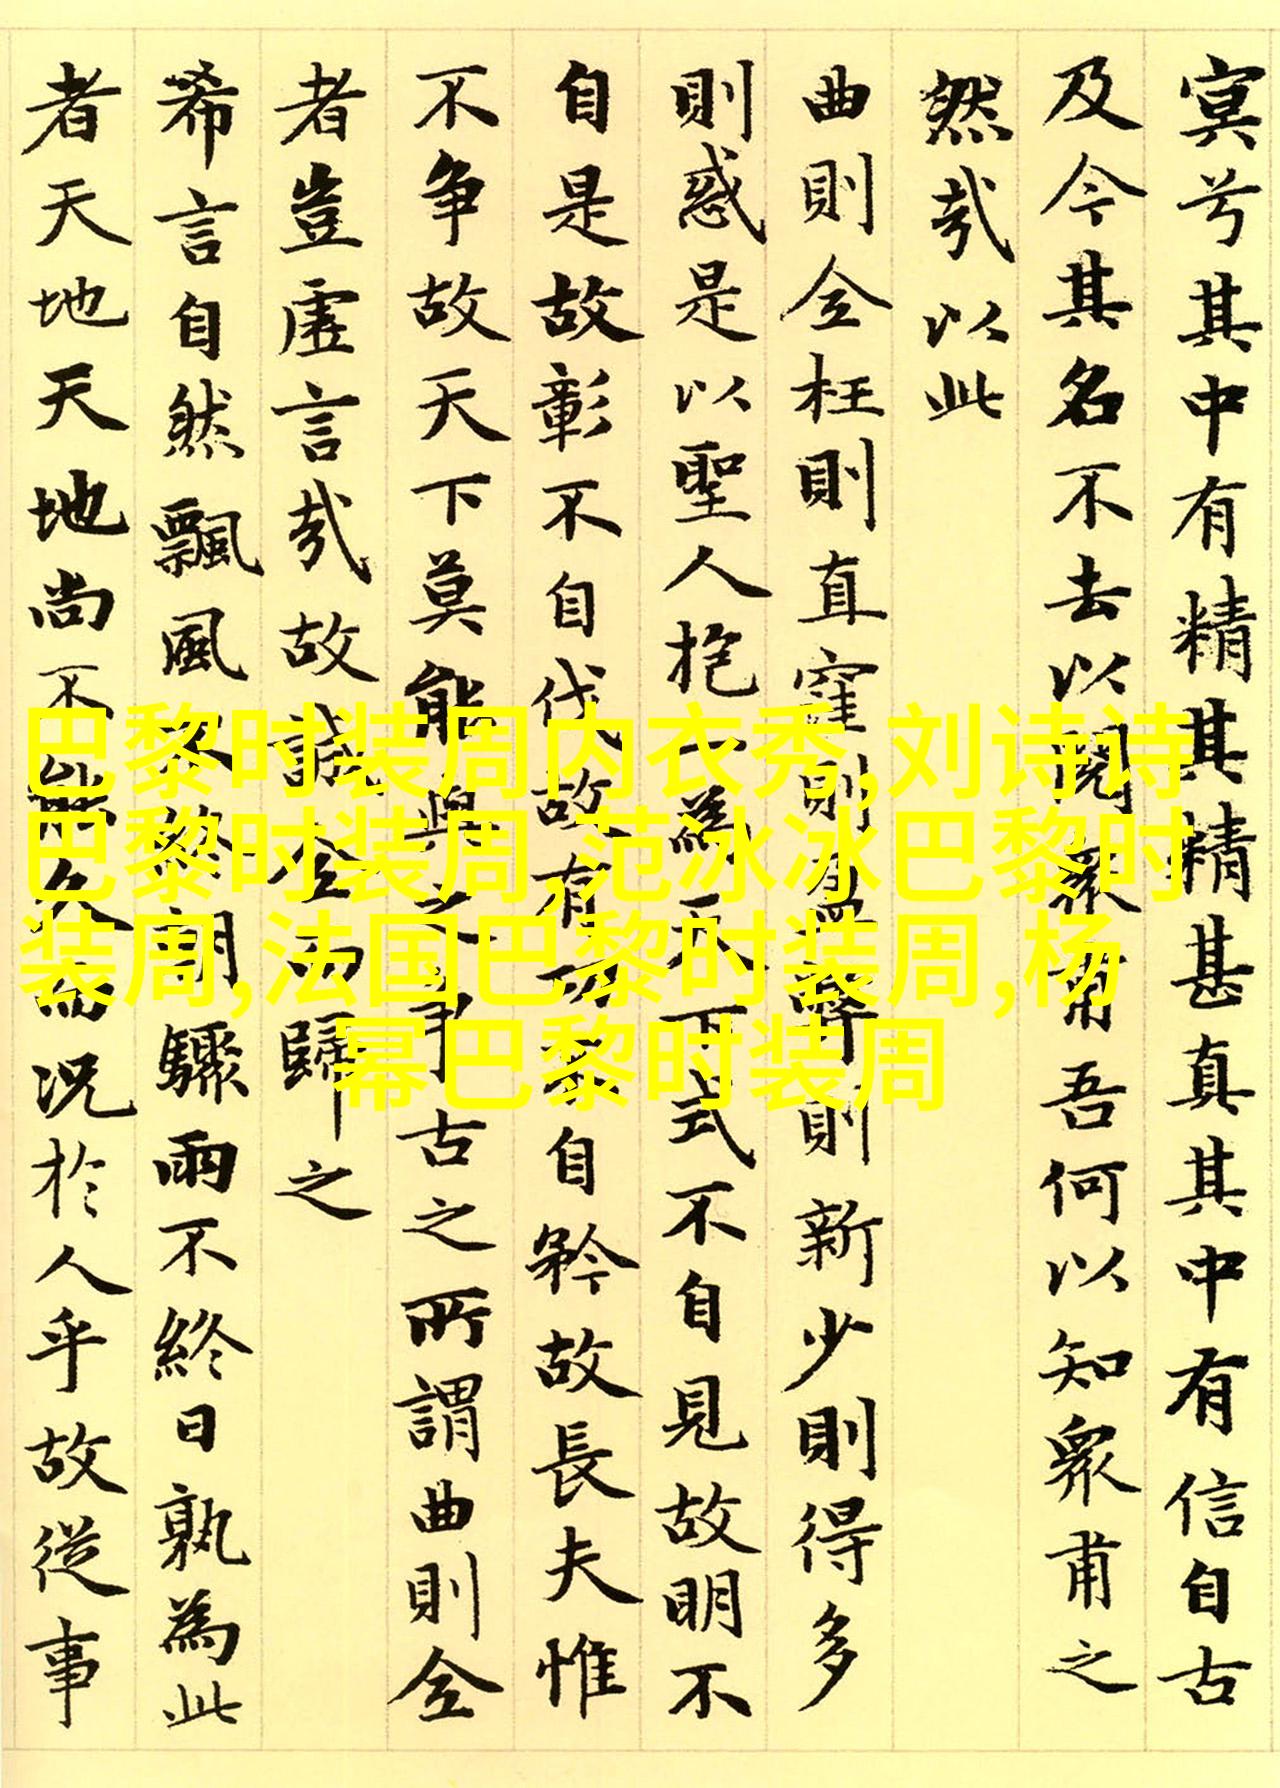 冥兮其中有精其精甚真其中有信自古
及今其名不去以閱衆甫吾何以知衆甫之
然哉以此
曲則全枉則直窪則盈弊則新少則得多
則惑是以聖人抱一為天下式不自見故明不
自是故彰不自伐故有功不自矜故長夫惟
不争故天下莫能與之争古之所謂曲則全
者豈虛言哉故誠全而歸之
希言自然飄風不終朝驟雨不終日孰為此
者天地天地尚不能久而況於人乎故從事
巴黎时装周内衣秀,刘诗诗
巴黎时装周,范冰冰巴黎时
装周,法国巴黎时装周,杨
幂巴黎时装周